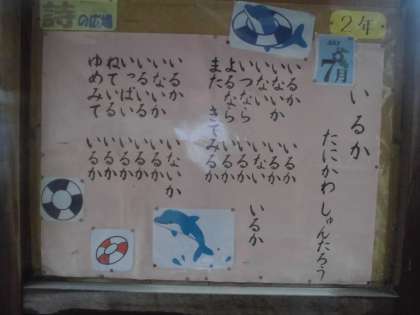 詩の広場
2年
JULY
7月
いるか
たにかわ しゅんたろう
いるか いるか
いないか いるか
いない いない いるか
いつなら いるか
よるなら いるか
また きてみるか
いるか いないか
いないか いるか
いる いる いるか
いっぱい いるか
ねている いるか
ゆめみて いるか